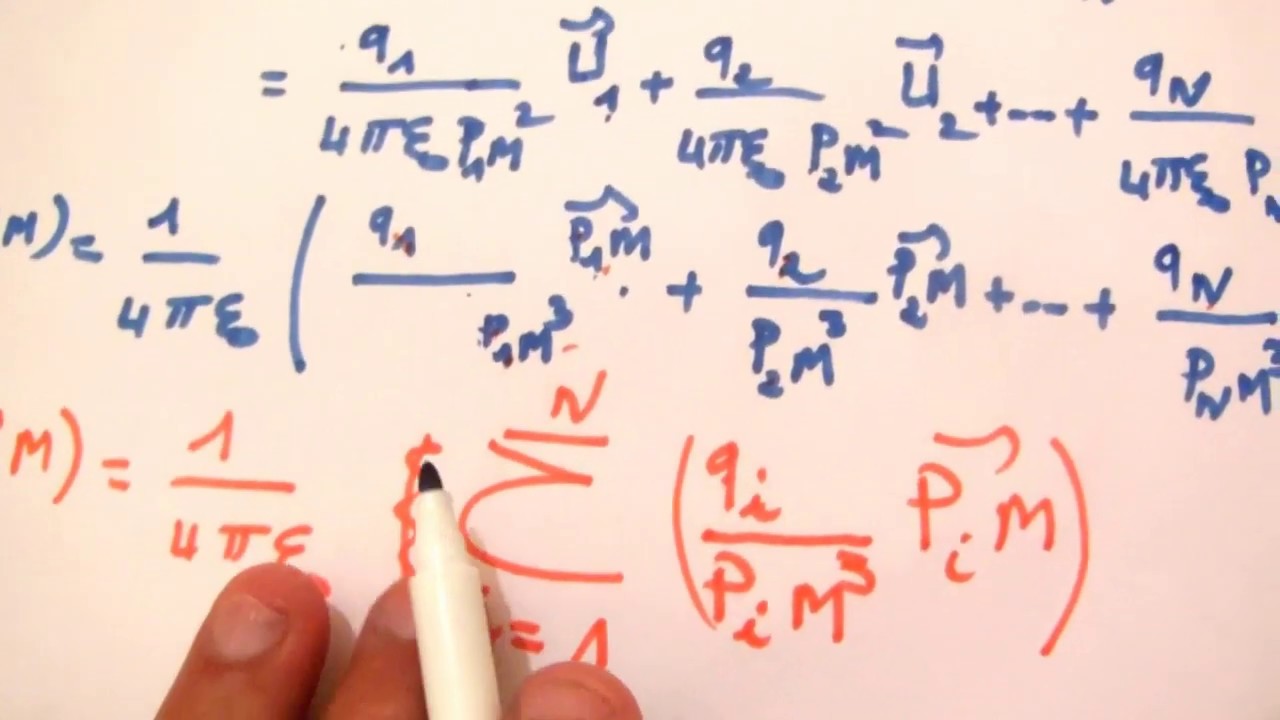 = q₁/(4πε₀ P₁M²) U⃗₁ + q₂/(4πε₀ P₂M²) U⃗₂ + ... + q_N/(4πε₀ P_N
M) = 1/(4πε₀) ( q₁/(P₁M³) P₁M⃗ . + q₂/(P₂M³) P₂M⃗ + ... + q_N/(P_N M³
M) = 1/(4πε₀) { Σ_{i=1}^{N} ( q_i/(P_i M³) P_i M⃗ )